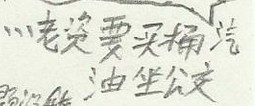 …老资要买桶汽
油坐公交